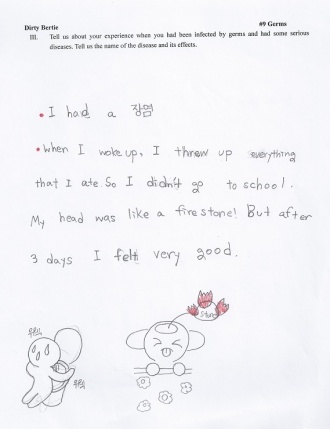 Dirty Bertie
#9 Germs
III. Tell us about your experience when you had been infected by germs and had some serious
diseases. Tell us the name of the disease and its effects.
• I had a 장염
• When I woke up, I threw up everything
that I ate. So I didn't go to school.
My head was like a fire stone! But after
3 days I felt very good.
우웩
우웩
Stone